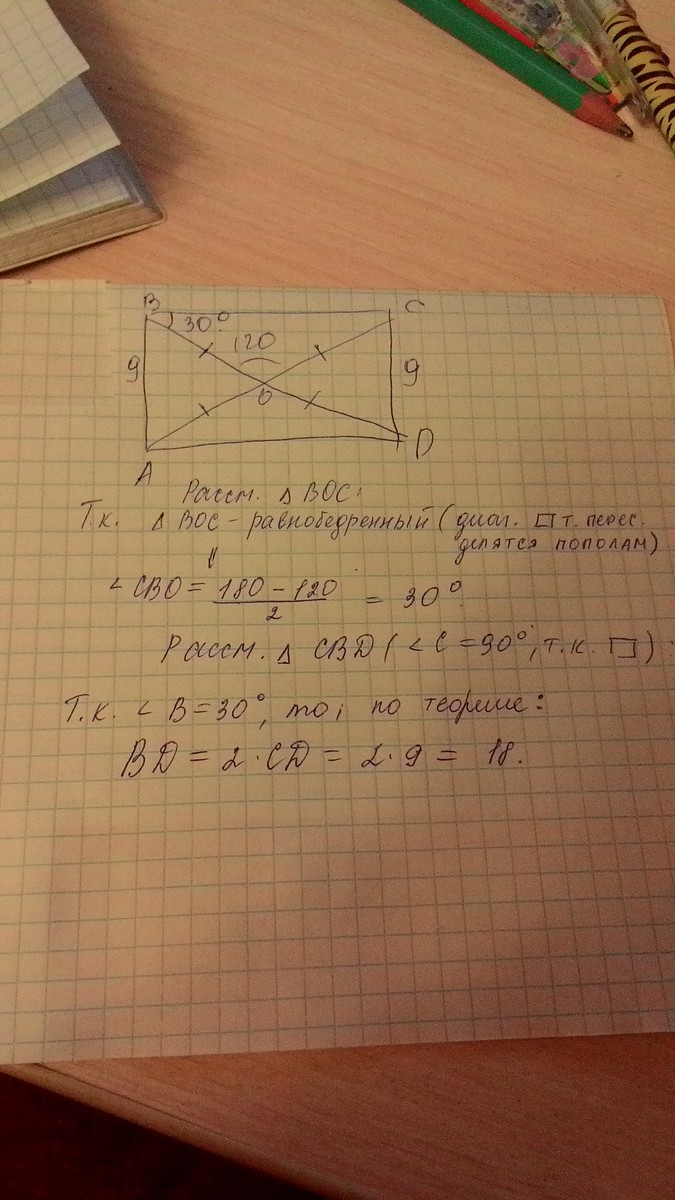 B C
30°
120
9 9
O
A D
Рассм. △ BOC:
Т.к. △ BOC - равнобедренный (диаг. □ т. перес.
делятся пополам)
⇓
∠ CBO = 180 - 120 / 2 = 30°
Рассм. △ CBD ( ∠ C = 90°, т.к. □ ) :
Т.к. ∠ B = 30°, то, по теореме:
BD = 2 · CD = 2 · 9 = 18.